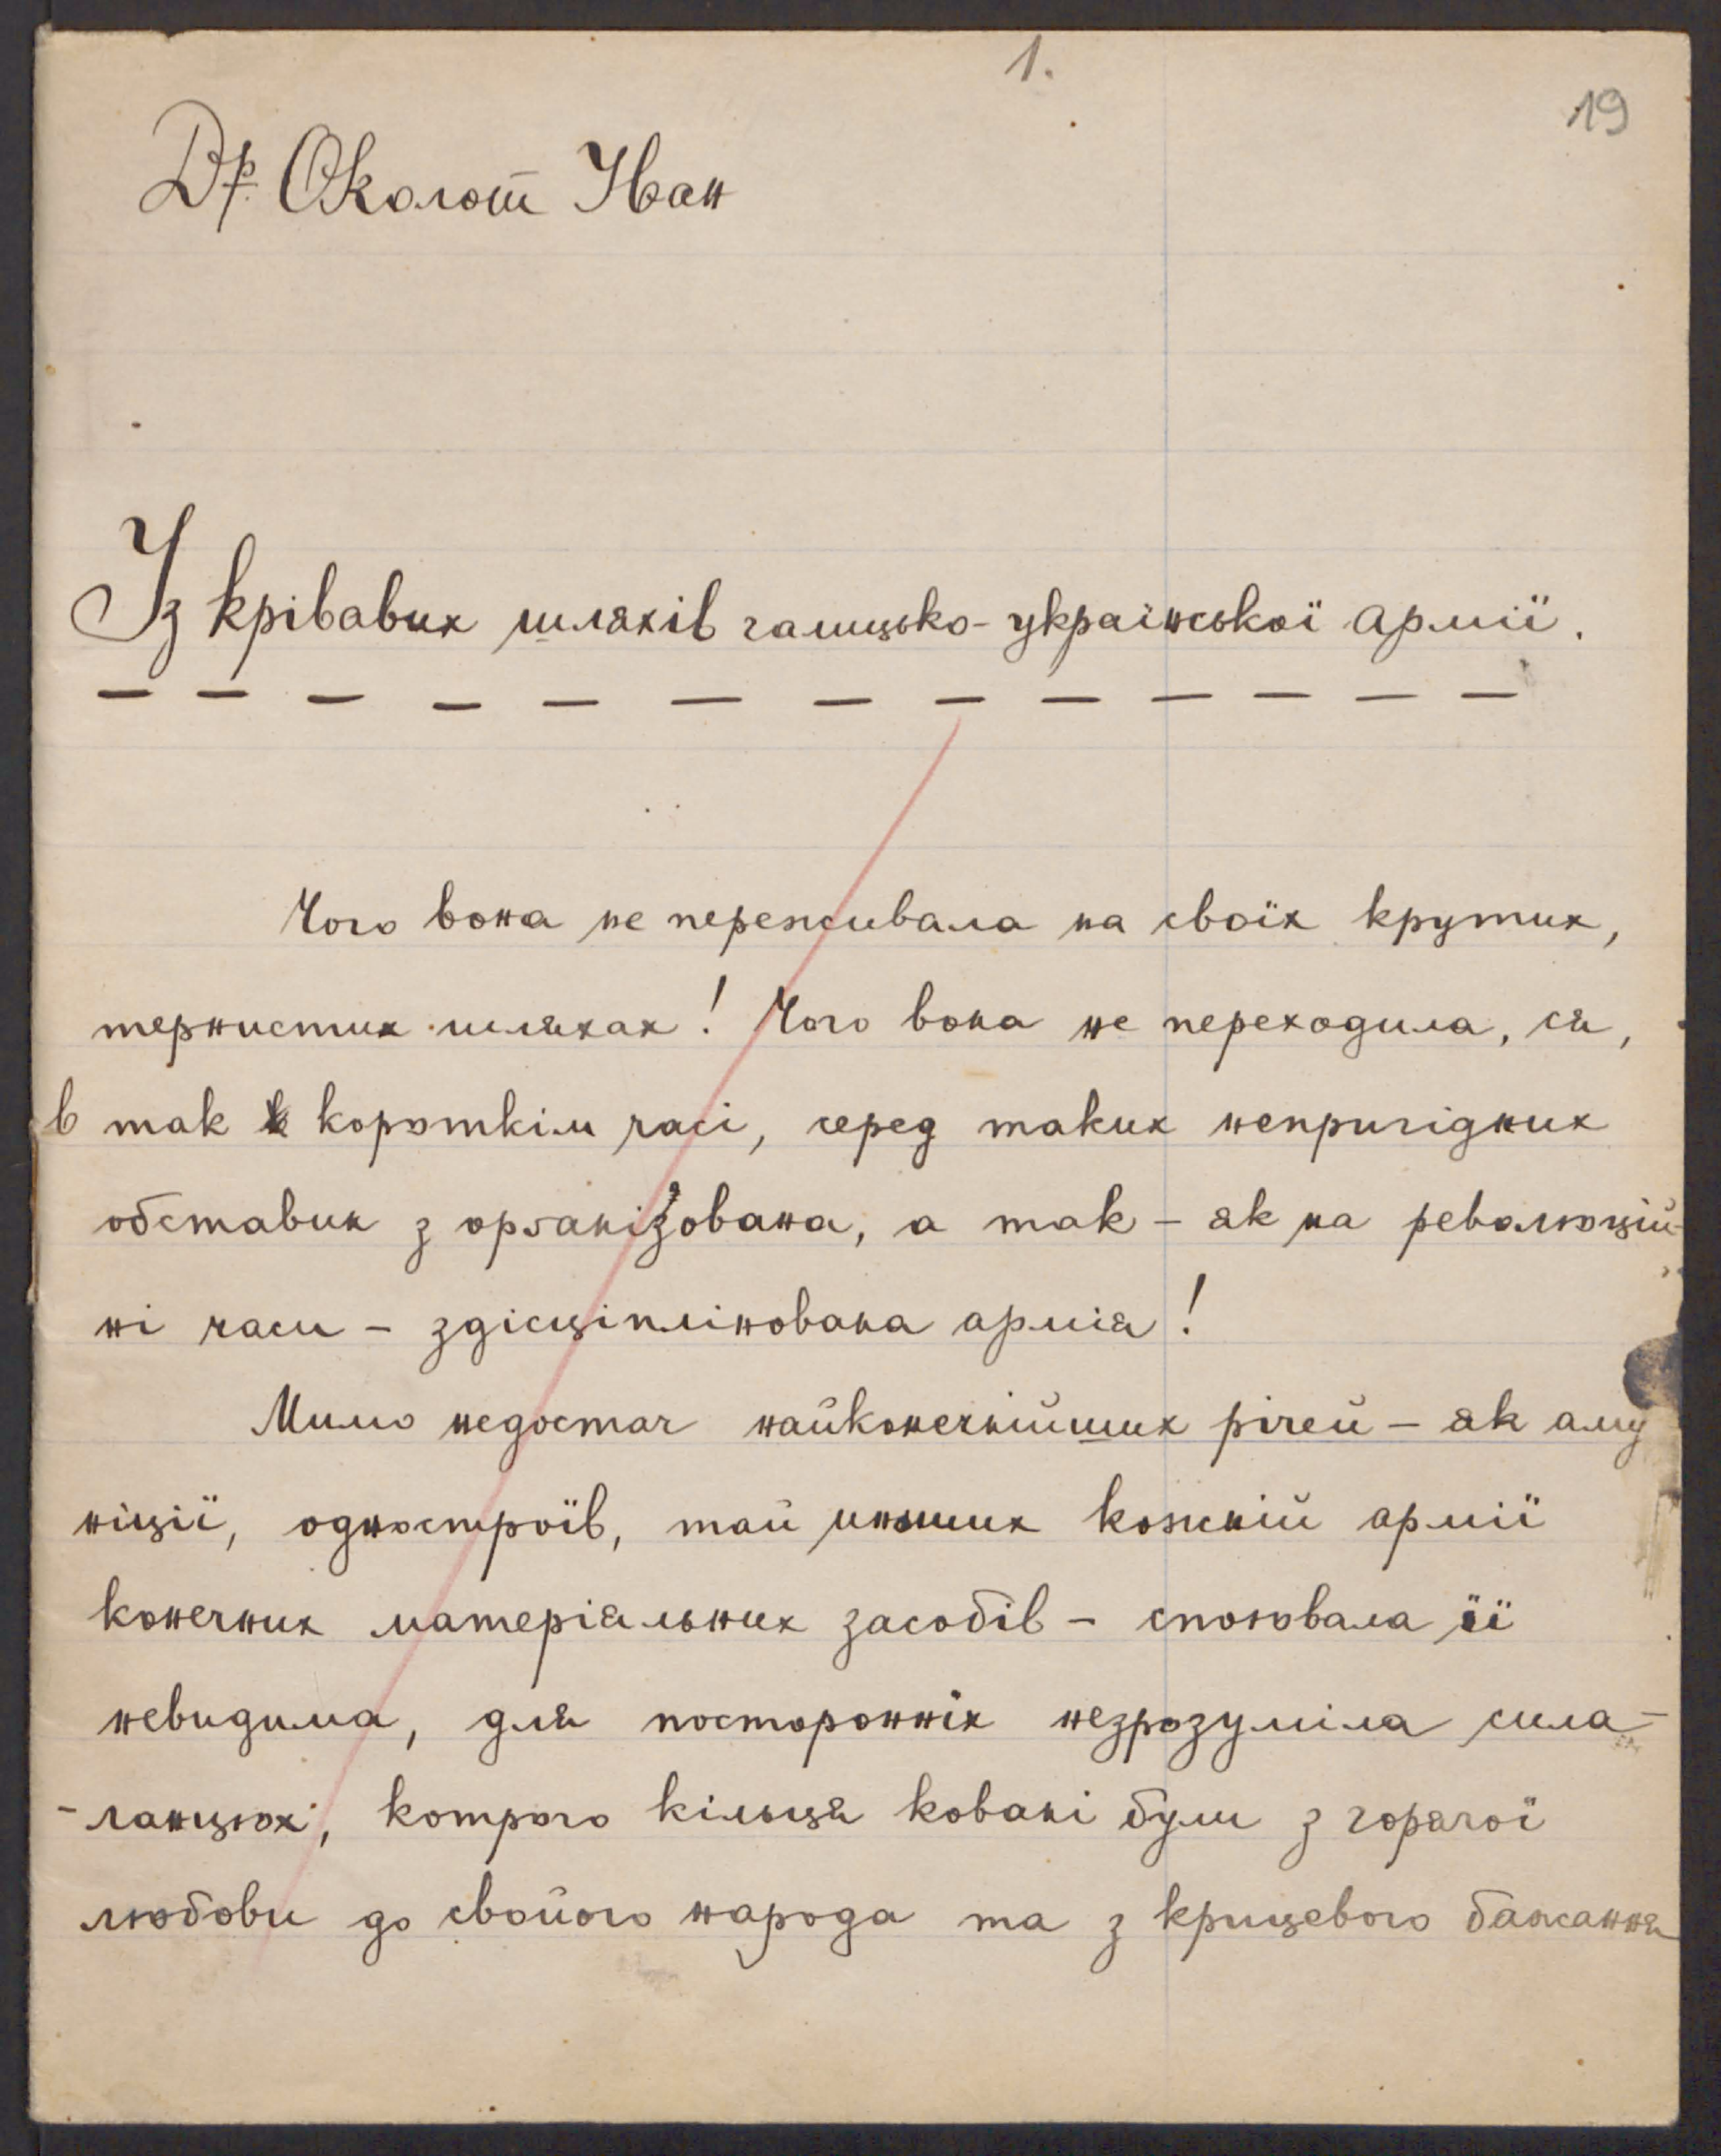 1.
19
Др. Околот Іван
Із крівавих шляхів галицько-української армії.
Чого вона не переживала на своїх крутих,
тернистих шляхах! Чого вона не переходила, ся,
в так короткім часі, серед таких непригідних
обставин з орґанізована, а так - як на революцій-
ні часи - здісціплінована армія!
Мимо недостач найконечнійших річей - як аму
ніції, одностроїв, тай инших кожній армії
конечних матеріяльних засобів - споювала її
невидима, для посторонніх незрозуміла сила-
-ланцюх, котрого кільця ковані були з горячої
любови до свойого народа та з крицевого бажання